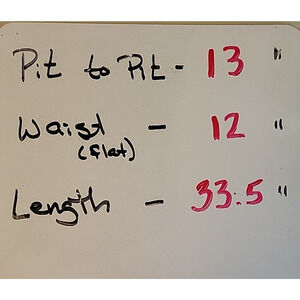 Pit to Pit - 13 "
Waist - 12 "
(flat)
Length - 33.5 "